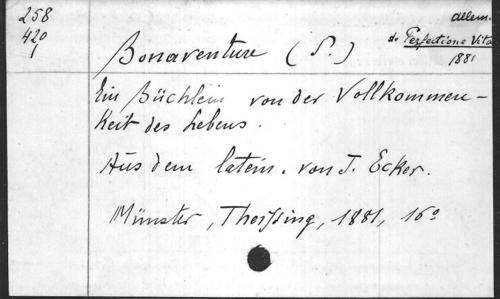 258
420
1
allem.
de Perfectione Vitae
1881
Bonaventure (S.)
Ein Büchlein von der Vollkommen-
keit des Lebens.
Aus dem latein. von J. Ecker.
Münster, Theissing, 1881, 16º